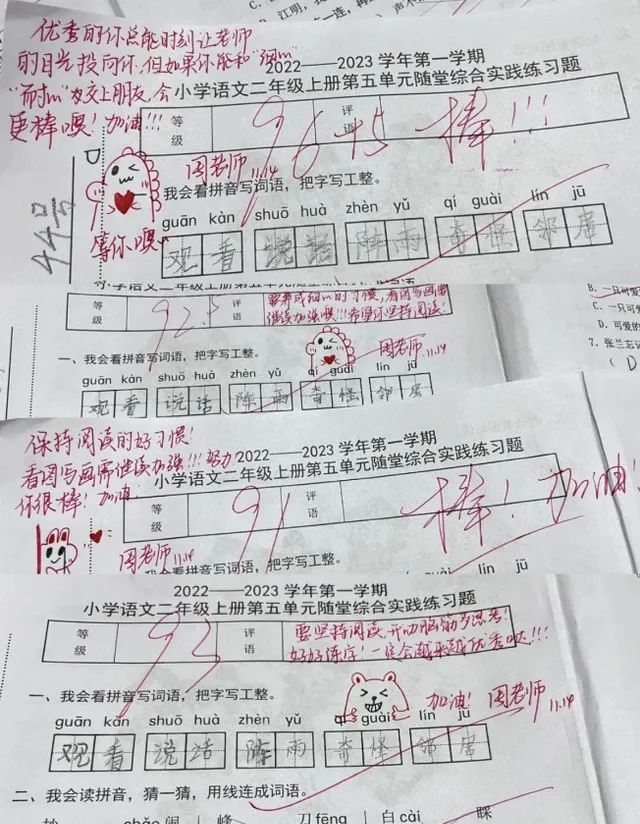 C.
B. 江明，我
一连，再
声不
优秀的你总能时刻让老师
的目光投向你，但如果你能和“细心”
2022——2023 学年第一学期
“耐心”为交上朋友，会
小学语文二年级上册第五单元随堂综合实践练习题
更棒噢！加油!!!
等级
96+5
评语
棒!!!
周老师 11.14
44号
我会看拼音写词语，把字写工整。
guān kàn shuō huà zhèn yǔ qí guài lín jū
等你噢
观看 说话 阵雨 奇怪 邻居
等级
92.5
评语
要养成细心的习惯，看图写画需
继续加强噢!!!希望你坚持阅读！
周老师 11.14
一、我会看拼音写词语，把字写工整。
guān kàn shuō huà zhèn yǔ qí guài lín jū
观看 说话 阵雨 奇怪 邻居
B. 一只可爱
C. 一只
D. 可爱的
7. 张兰忘记
( D
保持阅读的好习惯！
2022——2023 学年第一学期
看图写画需继续加强!!!努力
小学语文二年级上册第五单元随堂综合实践练习题
你很棒！加油！
等级
91
评语
棒！加油！
周老师 11.14
我会看拼音写词语，把字写工整。
lín jū
2022——2023 学年第一学期
小学语文二年级上册第五单元随堂综合实践练习题
等级
93
评语
要坚持阅读，开动脑筋多思考！
好好练字！一定会越来越优秀哒!!!
加油！周老师 11.14
一、我会看拼音写词语，把字写工整。
guān kàn shuō huà zhèn yǔ qí guài lín jū
观看 说话 阵雨 奇怪 邻居
二、我会读拼音，猜一猜，用线连成词语。
chǎo 闹 峰 刀 fēng 白 cài 睬